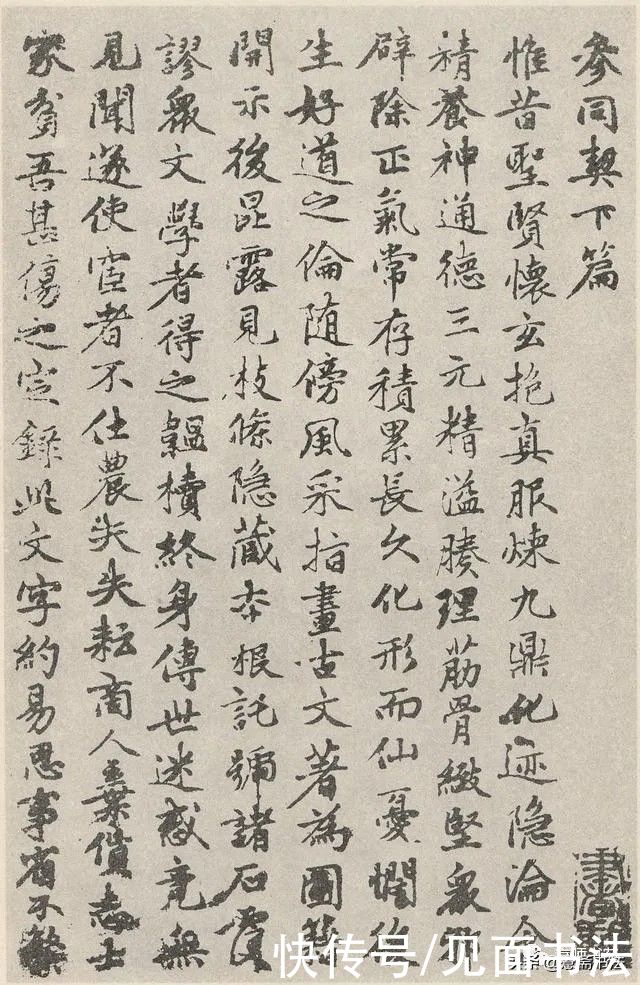 參同契下篇
惟昔聖賢懷玄抱真服煉九鼎化迹隐淪含
精養神通德三元精溢腠理筋骨緻堅衆邪
辟除正氣常存積累長久化形而仙憂憫後
生好道之倫随傍風采指畫古文著為圖籍
開示後昆露見枝條隐藏本根託號諸石覆
謬衆文學者得之韞櫝終身傳世迷惑竟無
見聞遂使宦者不仕農夫失耘商人棄貨志士
家貧吾甚傷之定錄此文字約易思事省不繁
快传号/见面书法